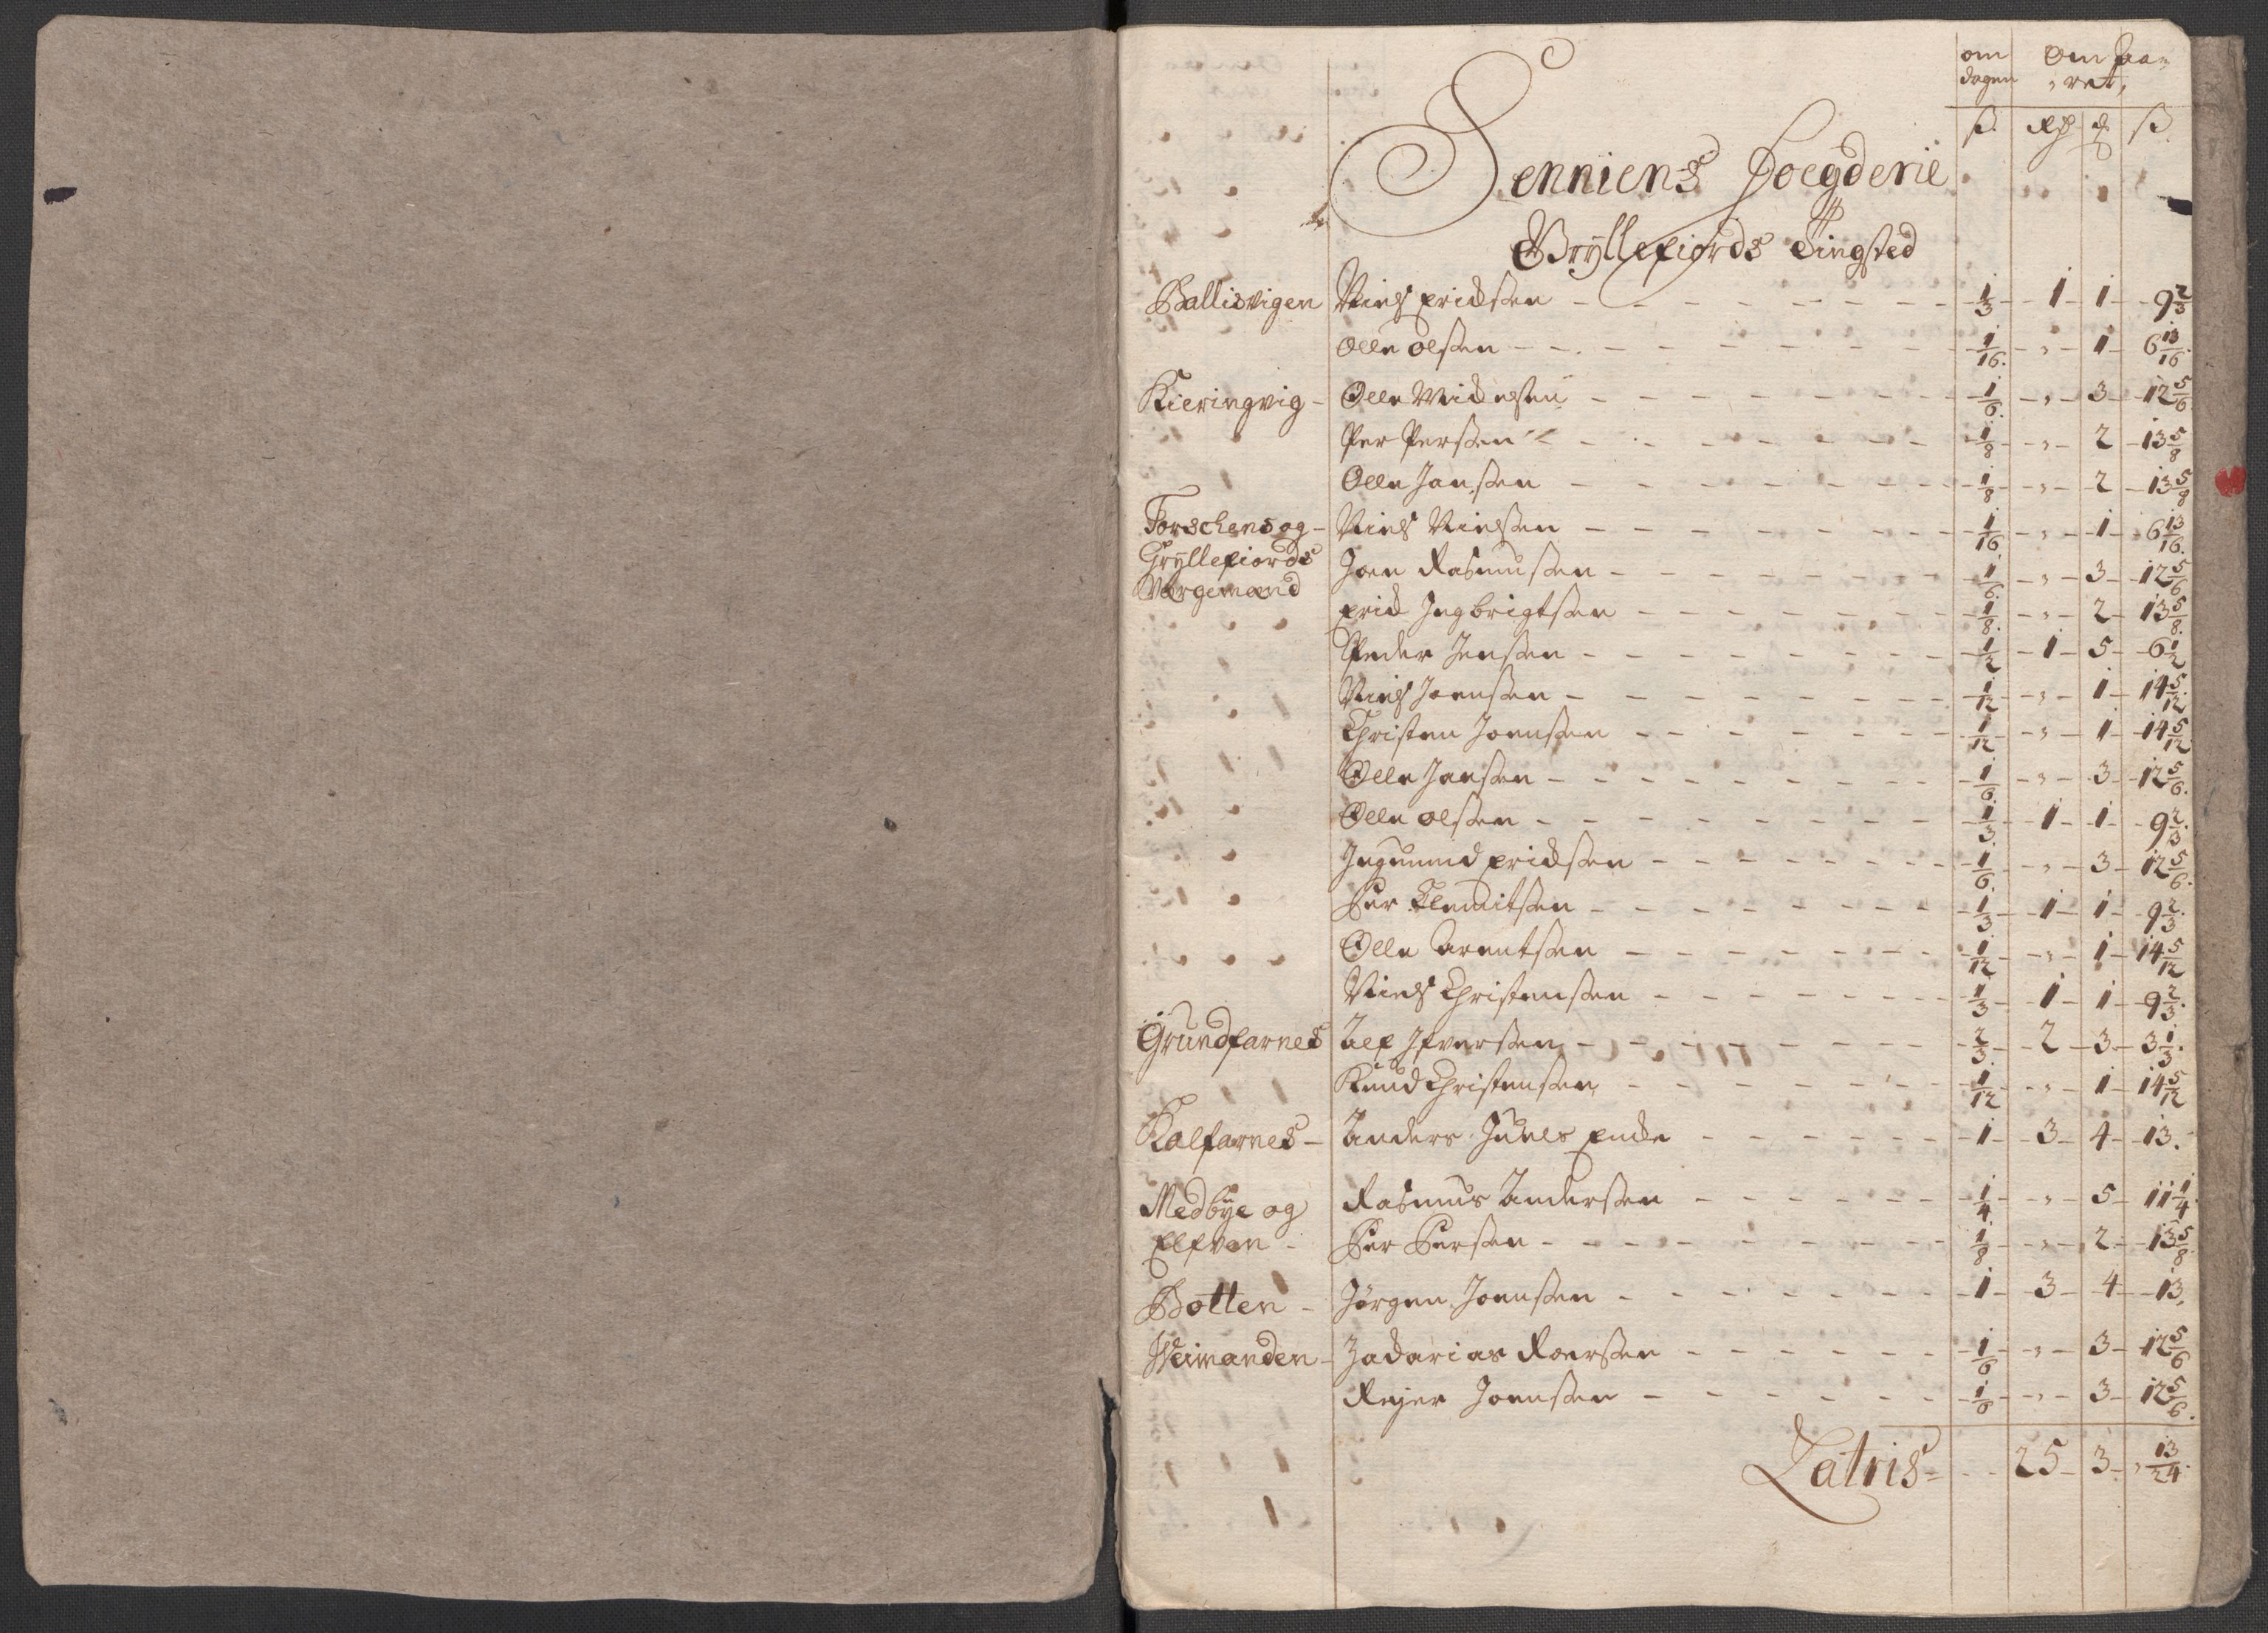 om dagen | Om Aa= ret,
ß | Rdr | ℳ | ß
Senniens Foegderie
Gryllefiords Tingsted
Ballisvigen | Niels Erichsen - 1/3 - 1 - 1 - 9 2/3
Olle Olsen - 1/16 - " - 1 - 6 13/16
Kieringvig - Olle Michelsen - 1/6 - " - 3 - 12 5/6
Per Persen - 1/8 - " - 2 - 13 5/8
Olle Jansen - 1/8 - " - 2 - 13 5/8
Torschens og - Niels Nielsen - 1/16 - " - 1 - 6 13/16
Gryllefiords Joen Rasmussen - 1/6 - " - 3 - 12 5/6
Wargemænd
Erich Ingbrigtsen - 1/8 - " - 2 - 13 5/8
Peder Jensen - 1/2 - 1 - 5 - 6 1/2
Niels Joensen - 1/12 - " - 1 - 14 5/12
Christen Joensen - 1/12 - " - 1 - 14 5/12
Olle Jansen - 1/6 - " - 3 - 12 5/6
Olle Olsen - 1/3 - 1 - 1 - 9 2/3
Ingmund Erichsen - 1/6 - " - 3 - 12 5/6
Per Clemitsen - 1/3 - 1 - 1 - 9 2/3
Olle Arentsen - 1/12 - " - 1 - 14 5/12
Niels Christensen - 1/3 - 1 - 1 - 9 2/3
Grundfarnes Lef Ifversen - 2/3 - 2 - 3 - 3 1/3
Knud Christensen - 1/12 - " - 1 - 14 5/12
Kalfarnes - Anders Juels Encke - 1 - 3 - 4 - 13
Medbye og Rasmus Andersen - 1/4 - " - 5 - 11 1/4
Elfven - Per Persen - 1/8 - " - 2 - 13 5/8
Botten - Jørgen Joensen - 1 - 3 - 4 - 13
Weimanden - Zacharias Roersen - 1/6 - " - 3 - 12 5/6
Reyer Joensen - 1/6 - " - 3 - 12 5/6
Latris - 25 - 3 - " 13/24